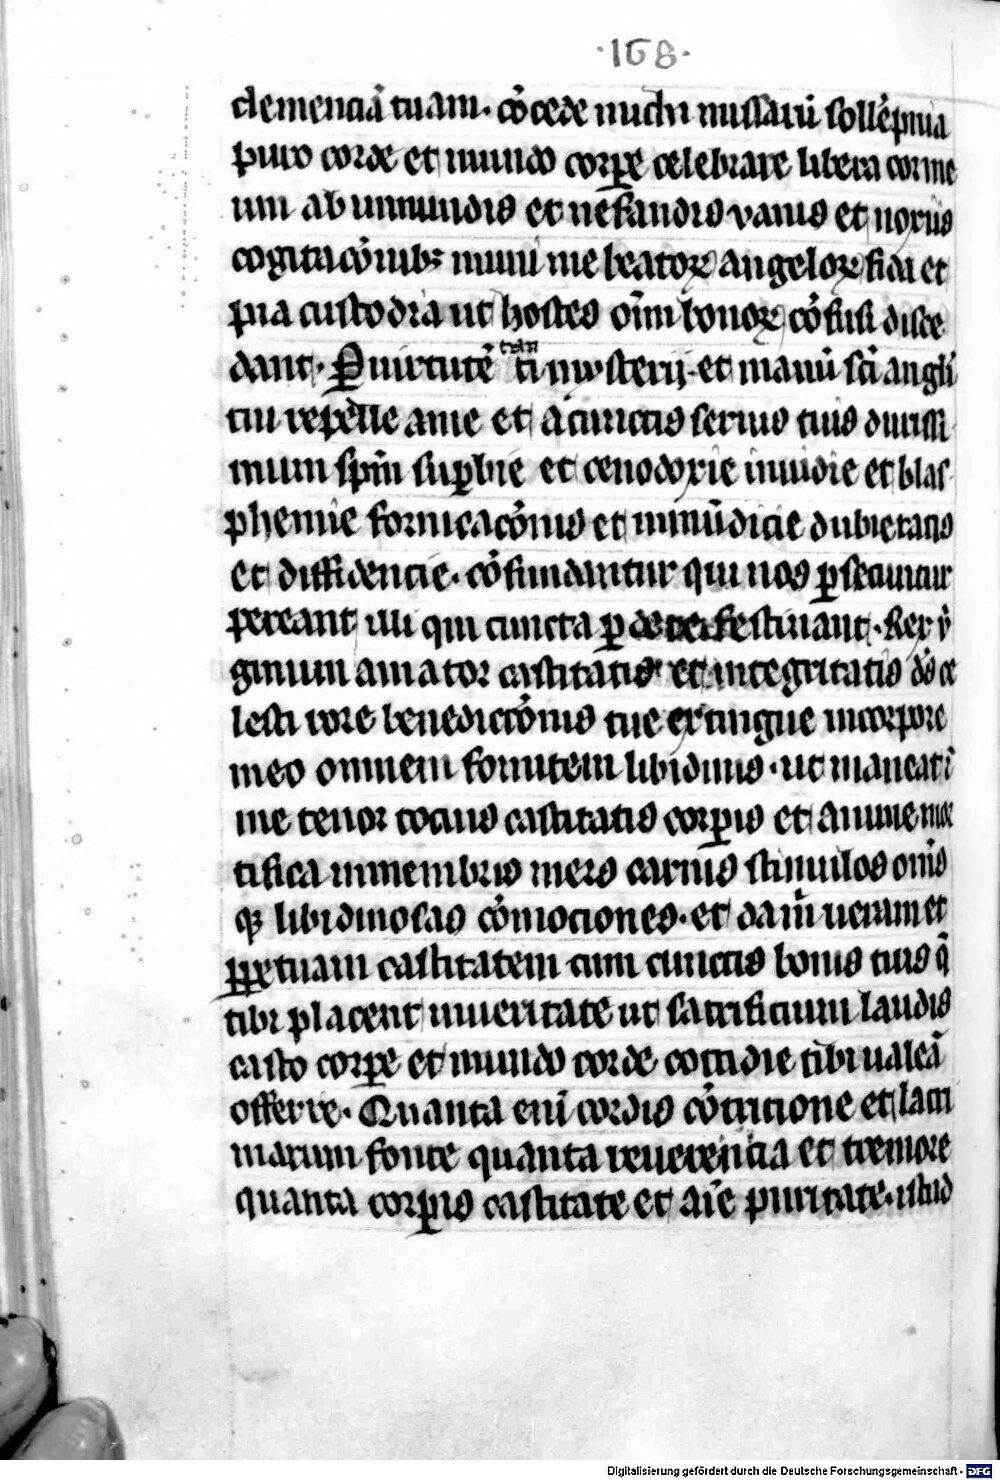 ·168·
clemenciā tuam. cōcede michi missarū sollēpnia
puro corde et mundo corꝑe celebrare libera cor me
um ab inmundis et nefandis vanis et noxiis
cogitacōnibꝫ muni me beatoꝝ angeloꝝ fida et
pia custodia ut hostes oīm bonoꝝ cōfusi disce
dant. Per uirtutē tanti mysterij et manū sc̄i angli
tui repelle a me et a cunctis seruis tuis durissi
mum spm̄ suꝑbie et cenodoxie inuidie et blas
phemie fornicacōnis et inmūdicie dubietatis
et diffidencie. cōfundantur qui nos ꝑsecuntur
pereant illi qui cuncta ꝑdere festinant. Rex v̄
ginum amator castitatis et integritatis ds̄ ce
lesti rore benedictōnis tue extingue in corpore
meo omnem fomitem libidinis. ut maneat ī
me tenor tocius castitatis corꝑis et anime mor
tifica in membris meis carnis stimulos oms̄
qꝫ libidinosas cōmociones. et da m̄ ueram et
ꝑpetuam castitatem cum cunctis bonis tuis q̄
tibi placent in ueritate ut sacrificium laudis
casto corꝑe et mundo corde cottidie tibi ualeā
offerre. Quanta enī cordis cōtricione et lacri
marum fonte quanta reuerencia et tremore
quanta corꝑis castitate et aīe puritate. istud
Digitalisierung gefördert durch die Deutsche Forschungsgemeinschaft - DFG